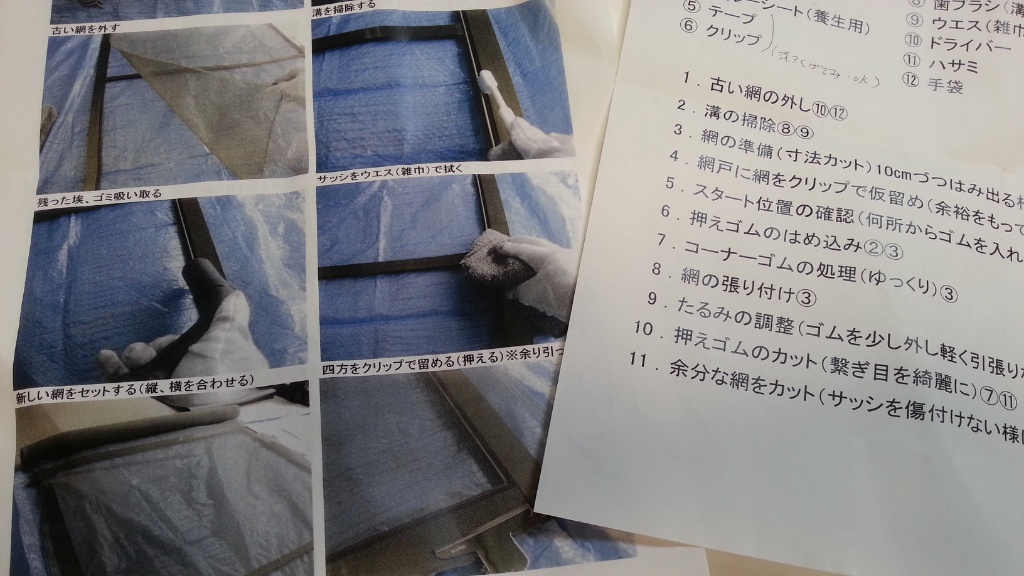 古い網を外す
溝を掃除する
残った埃、ゴミ吸い取る
サッシをウエス(雑巾)で拭く
新しい網をセットする(縦、横を合わせる)
四方をクリップで留める(押える)※余り引っ
ーシート(養生用)
⑤ テープ
⑥ クリップ
⑧ 歯ブラシ(溝
⑨ ウエス(雑巾
⑩ ドライバー
⑪ ハサミ
⑫ 手袋
1．古い網の外し⑩⑫
2．溝の掃除⑧⑨
3．網の準備(寸法カット)10cmづつはみ出る様
4．網戸に網をクリップで仮留め(余裕をもって
5．スタート位置の確認(何所からゴムを入れ
6．押えゴムのはめ込み②③
7．コーナーゴムの処理(ゆっくり)③
8．網の張り付け③
9．たるみの調整(ゴムを少し外し軽く引張りな
10．押えゴムのカット(繋ぎ目を綺麗に)⑦⑪
11．余分な網をカット(サッシを傷付けない様に